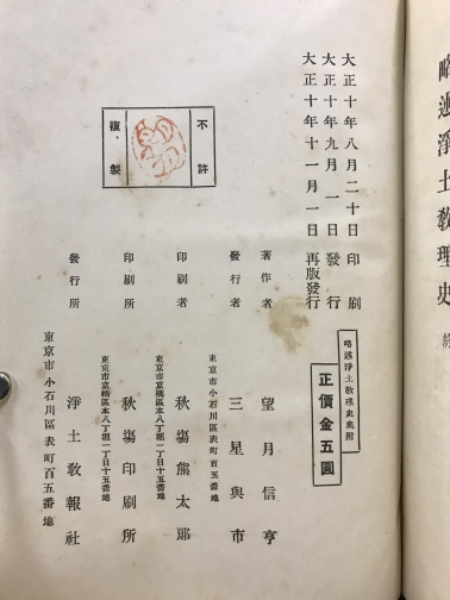 略述淨土敎理史 終
大正十年八月二十日印刷
大正十年九月一日發行
大正十年十一月一日再版發行
略述淨土敎理史奧附
正價金五圓
不許
複製
著作者 望月信亨
東京市小石川區表町百五番地
發行者 三星與市
東京市京橋區本八丁堀一丁目十五番地
印刷者 秋塲熊太郎
東京市京橋區本八丁堀一丁目十五番地
印刷所 秋塲印刷所
東京市小石川區表町百五番地
發行所 淨土敎報社